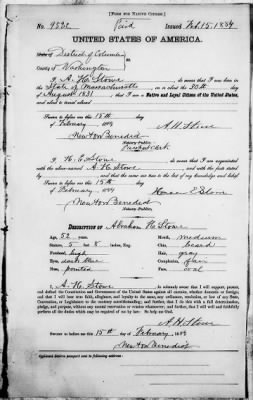 [FORM FOR NATIVE CITIZEN.]
No. 9532 Paid Issued Feb. 15, 1884
UNITED STATES OF AMERICA.
State of District of Columbia
County of Washington
I A. H. Stowe, do swear that I was born in the
State of Massachusetts on or about the 30th day of
August 1831, that I am a Native and Loyal Citizen of the United States,
and about to travel abroad
Sworn to before me this 15th day
of February 1884 A H Stowe
Newton Benedict
Notary Public.
I H. E. Stowe, do swear that I am acquainted
with the above-named A H Stowe and with the facts above
stated by him, and that the same are true to the best of my knowledge and belief.
Sworn to before me this 15th day
of February 1884 E Stowe
Newton Benedict
Notary Public.
DESCRIPTION OF Abraham H. Stowe
Age, 52 years. Mouth, medium
Stature, 5 feet 8 inches, Eng. Chin, beard
Forehead, high Hair, gray
Eyes, dark blue Complexion,
Nose, pointed Face, oval
I, A. H. Stowe, do solemnly swear that I will support, protect,
and defend the Constitution and Government of the United States against all enemies, whether domestic or foreign;
and that I will bear true faith, allegiance, and loyalty to the same, any ordinance, resolution, or law of any State,
Convention, or Legislature to the contrary notwithstanding; and further, that I do this with a full determination,
pledge, and purpose, without any mental reservation or evasion whatsoever; and further, that I will well and faithfully
perform all the duties which may be required of me by law: So help me God.
A. H. Stowe
Sworn to before me this 15th day of February, 1884
Newton Benedict